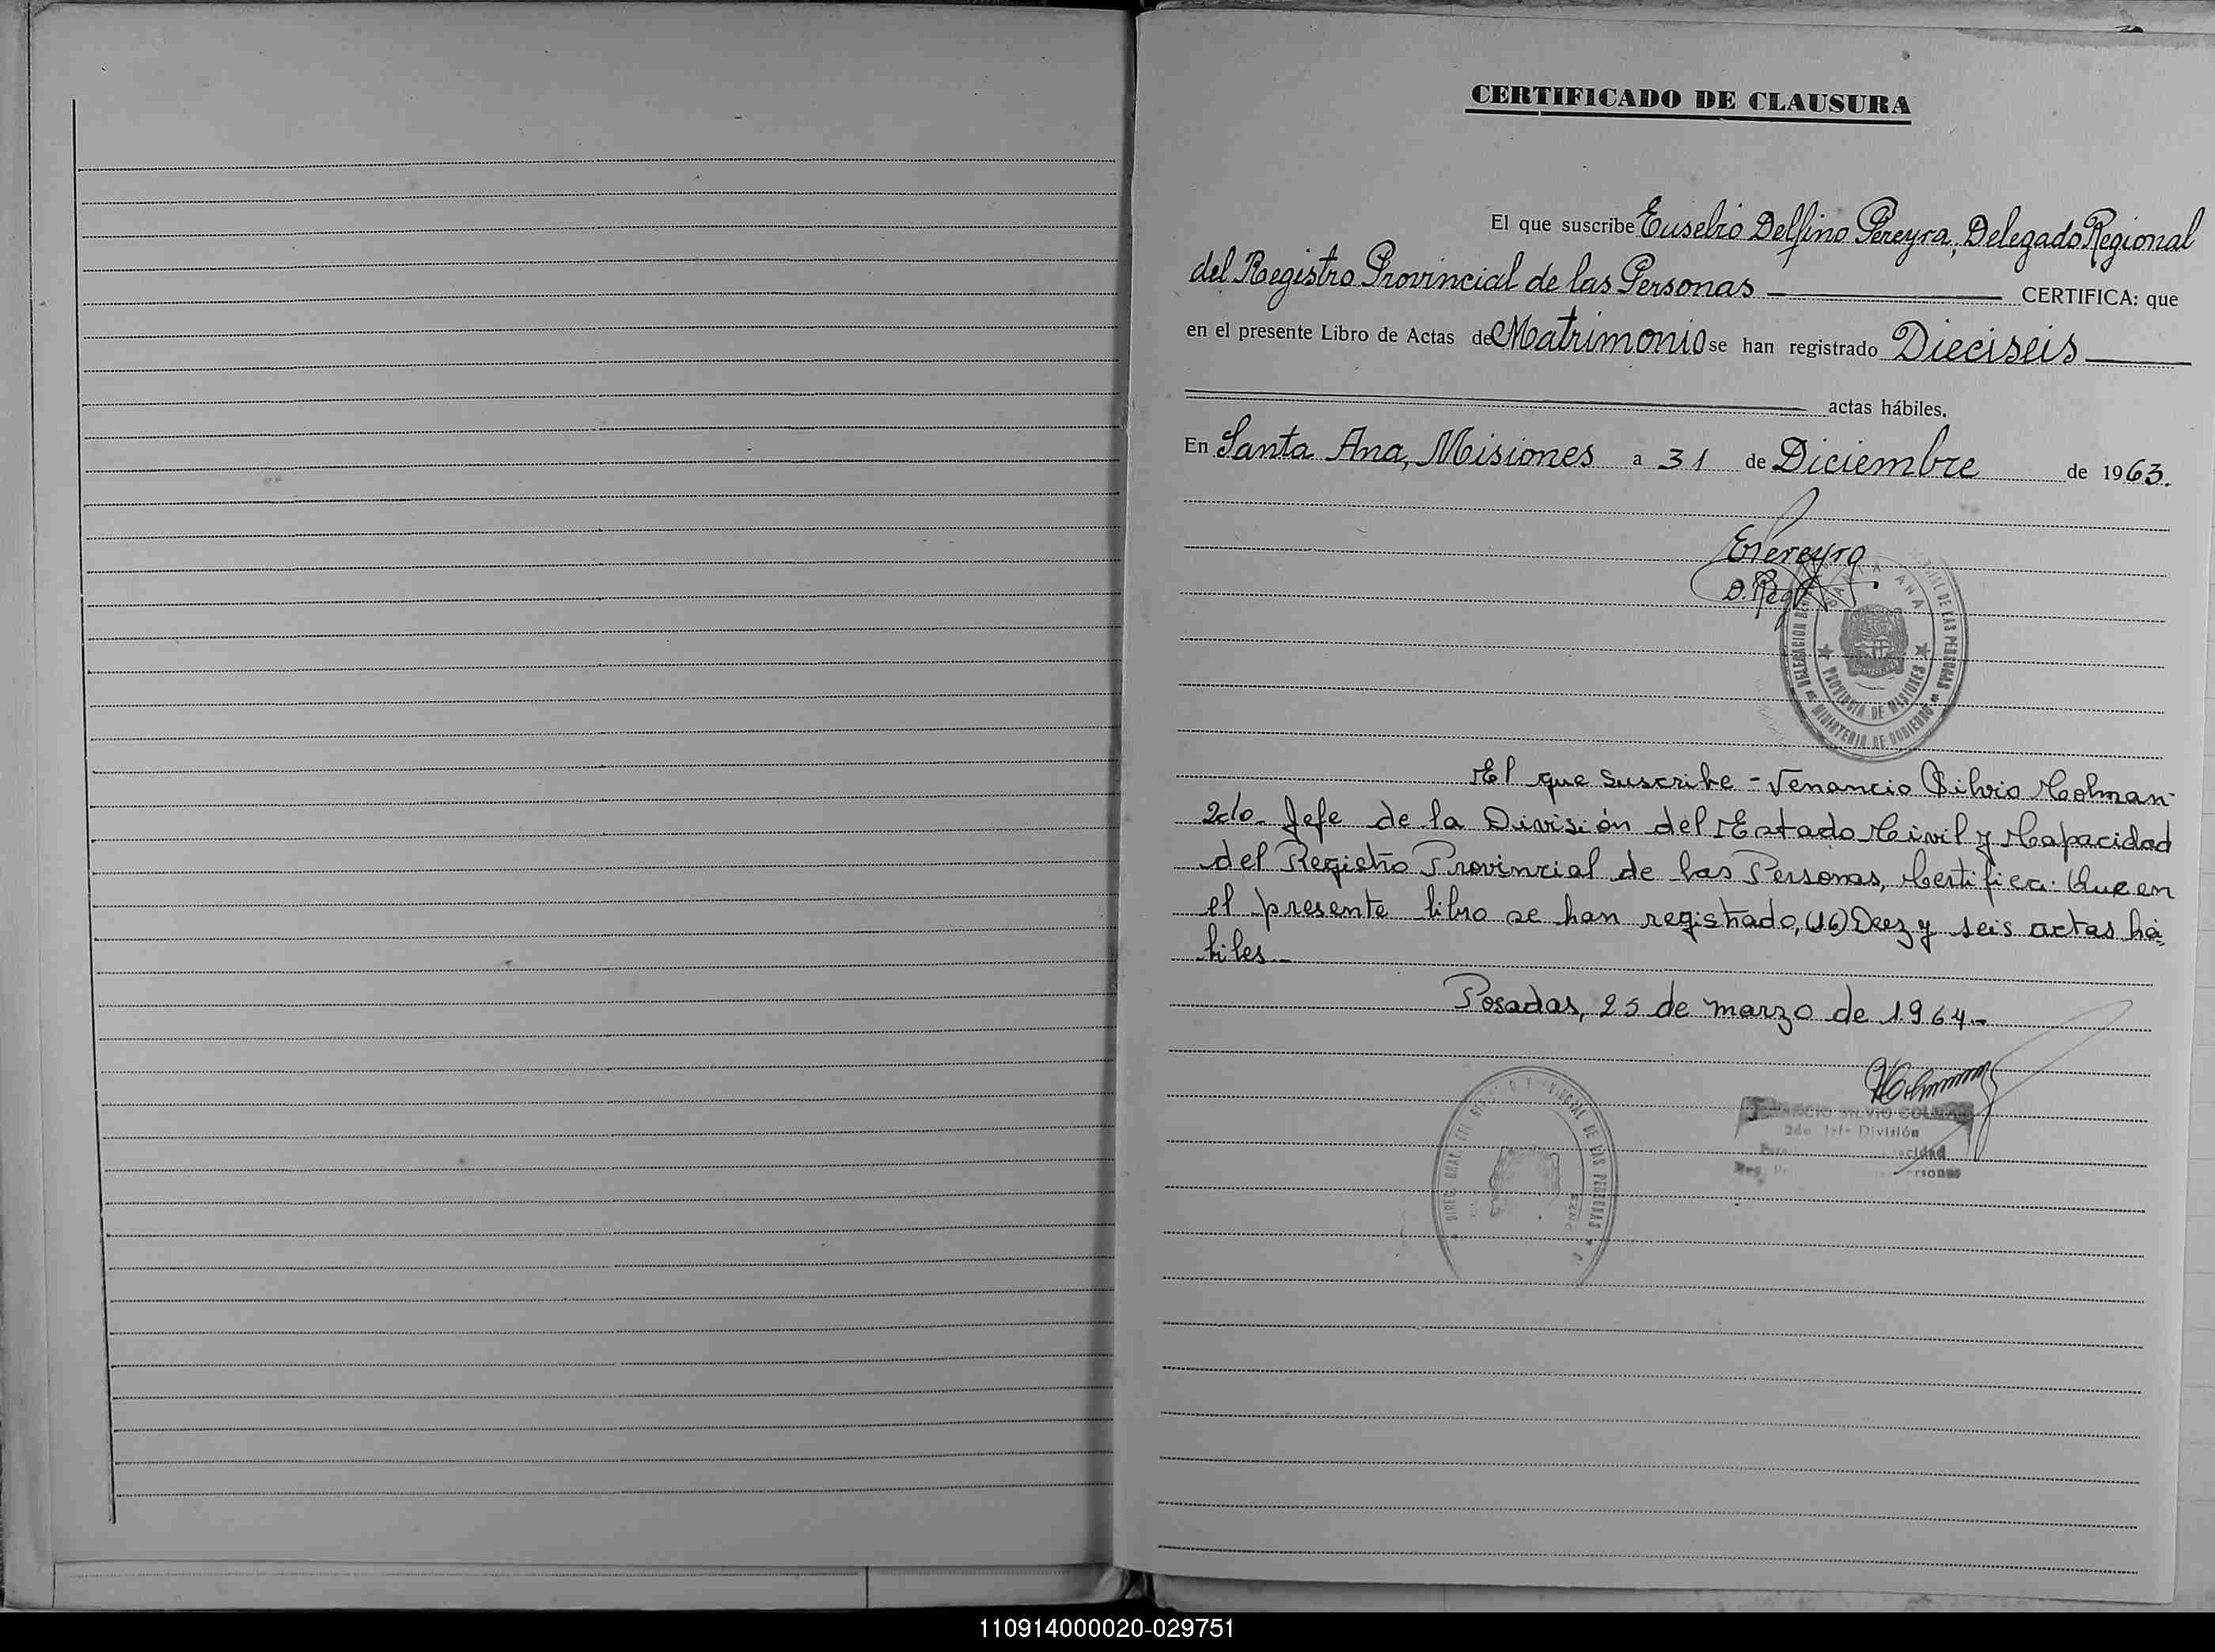 CERTIFICADO DE CLAUSURA
El que suscribe Eusebio Delfino Pereyra, Delegado Regional
del Registro Provincial de las Personas CERTIFICA: que
en el presente Libro de Actas de Matrimonio se han registrado Dieciseis
actas hábiles.
En Santa Ana, Misiones a 31 de Diciembre de 1963.
EPereyra
D. Reg
SANTA ANA
DELEGACION DE LAS PERSONAS
PROVINCIA DE MISIONES
MINISTERIO DE GOBIERNO
El que suscribe - Venancio Silvio Colman-
2do. Jefe de la División del Estado Civil y Capacidad
del Registro Provincial de las Personas, Certifica: Que en
el presente libro se han registrado, (16) Deez y seis actas há=
biles.-
Posadas, 25 de marzo de 1964.-
SILVIO COLMAN
2do Jefe División
DE LAS PERSONAS
110914000020-029751